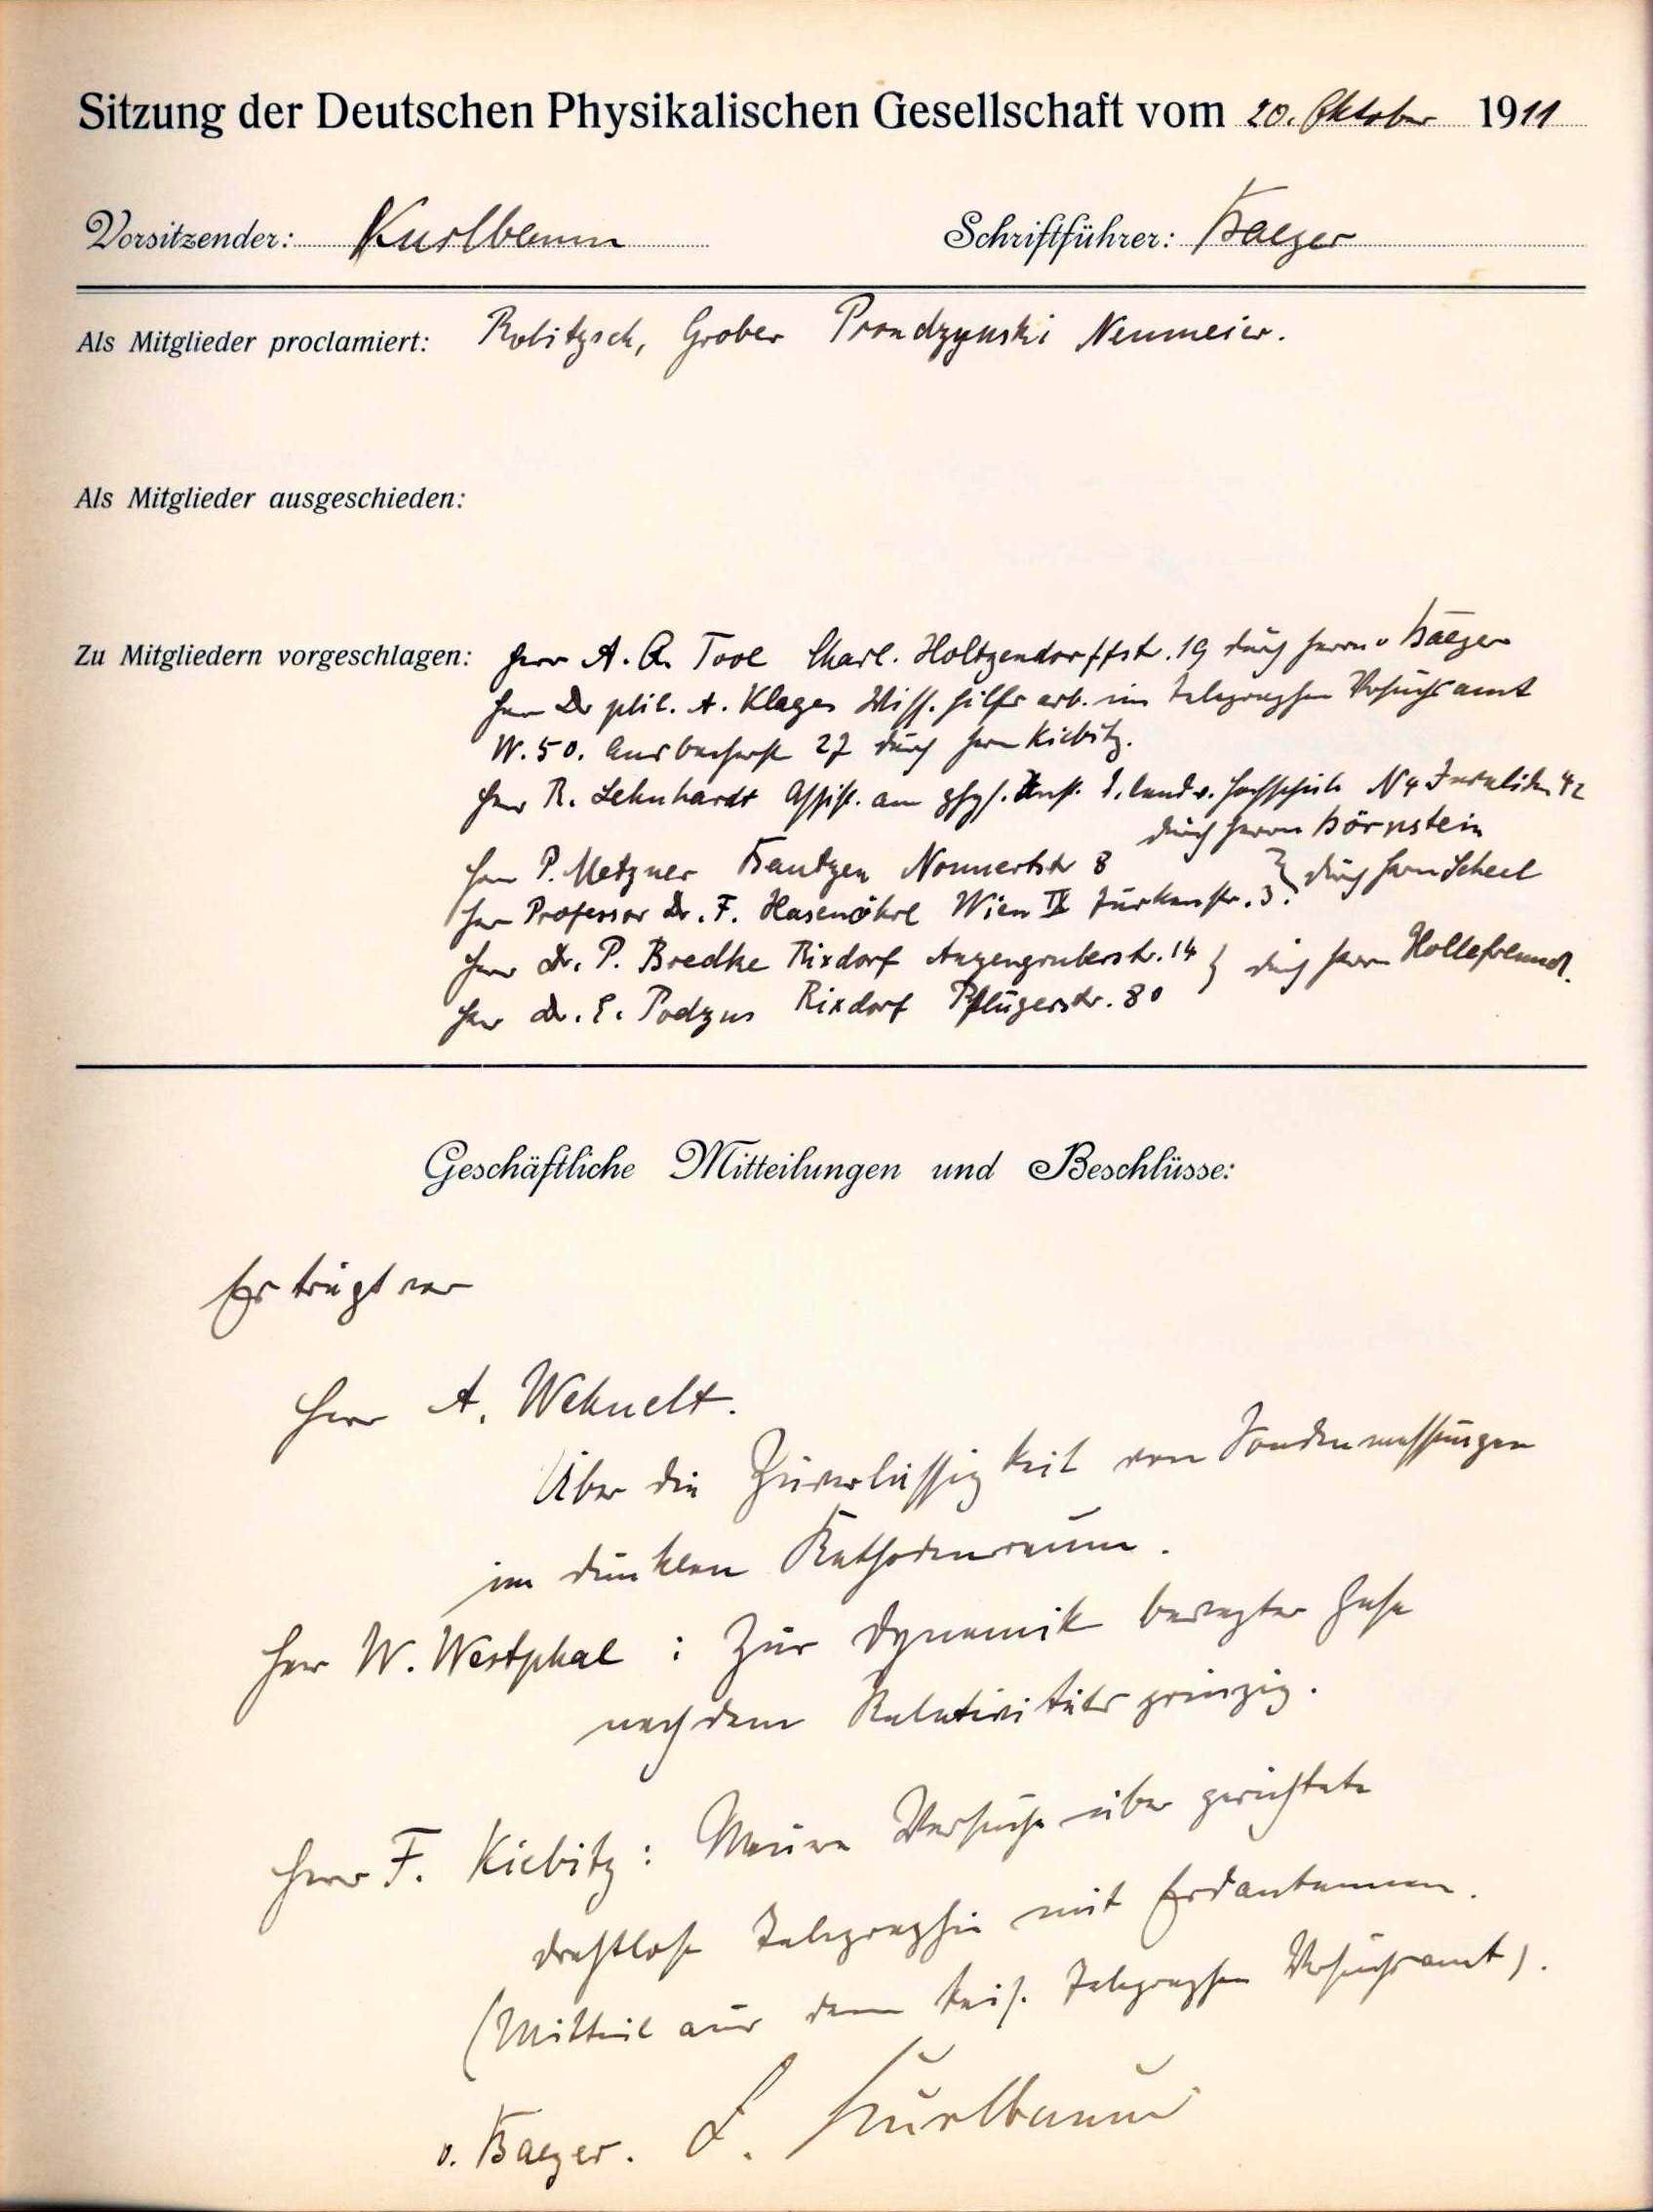 Sitzung der Deutschen Physikalischen Gesellschaft vom 20. Oktober 1911
Vorsitzender: Kurlbaum Schriftführer: Baeyer
Als Mitglieder proclamiert: Robitzsch, Grober Prondzynski Neumeier.
Als Mitglieder ausgeschieden:
Zu Mitgliedern vorgeschlagen: Herr A. Q. Tool Charl. Holtzendorffstr. 19 durch Herrn v Baeyer
Herr Dr phil. A. Klages Wiss. Hilfsarb. im Telegraphen Versuchsamt
W. 50. Ansbacherstr 27 durch Herrn Kiebitz.
Herr R. Lehnhardt Assist. am phys. Inst. d. landw. Hochschule N4 Invaliden 42
durch Herrn Börnstein
Herr P. Metzner Bautzen Nonnertstr 8
Herr Professor Dr. F. Hasenöhrl Wien IX Türkenstr. 3. } durch Herrn Scheel
Herr Dr. P. Bredtke Rixdorf Anzengruberstr. 14 } durch Herrn Hollefreund.
Herr Dr. E. Podszus Rixdorf Pflügerstr. 80
Geschäftliche Mitteilungen und Beschlüsse:
Es trägt vor
Herr A. Wehnelt.
Über die Zuverlässigkeit von Sondenmessungen
im dunklen Kathodenraum.
Herr W. Westphal : Zur Dynamik bewegter Gase
nach dem Relativitätsprinzip.
Herr F. Kiebitz : Neuere Versuche über gerichtete
drahtlose Telegraphie mit Erdantennen.
(Mitteil aus dem Kais. Telegraphen Versuchsamt).
v. Baeyer. F. Kurlbaum